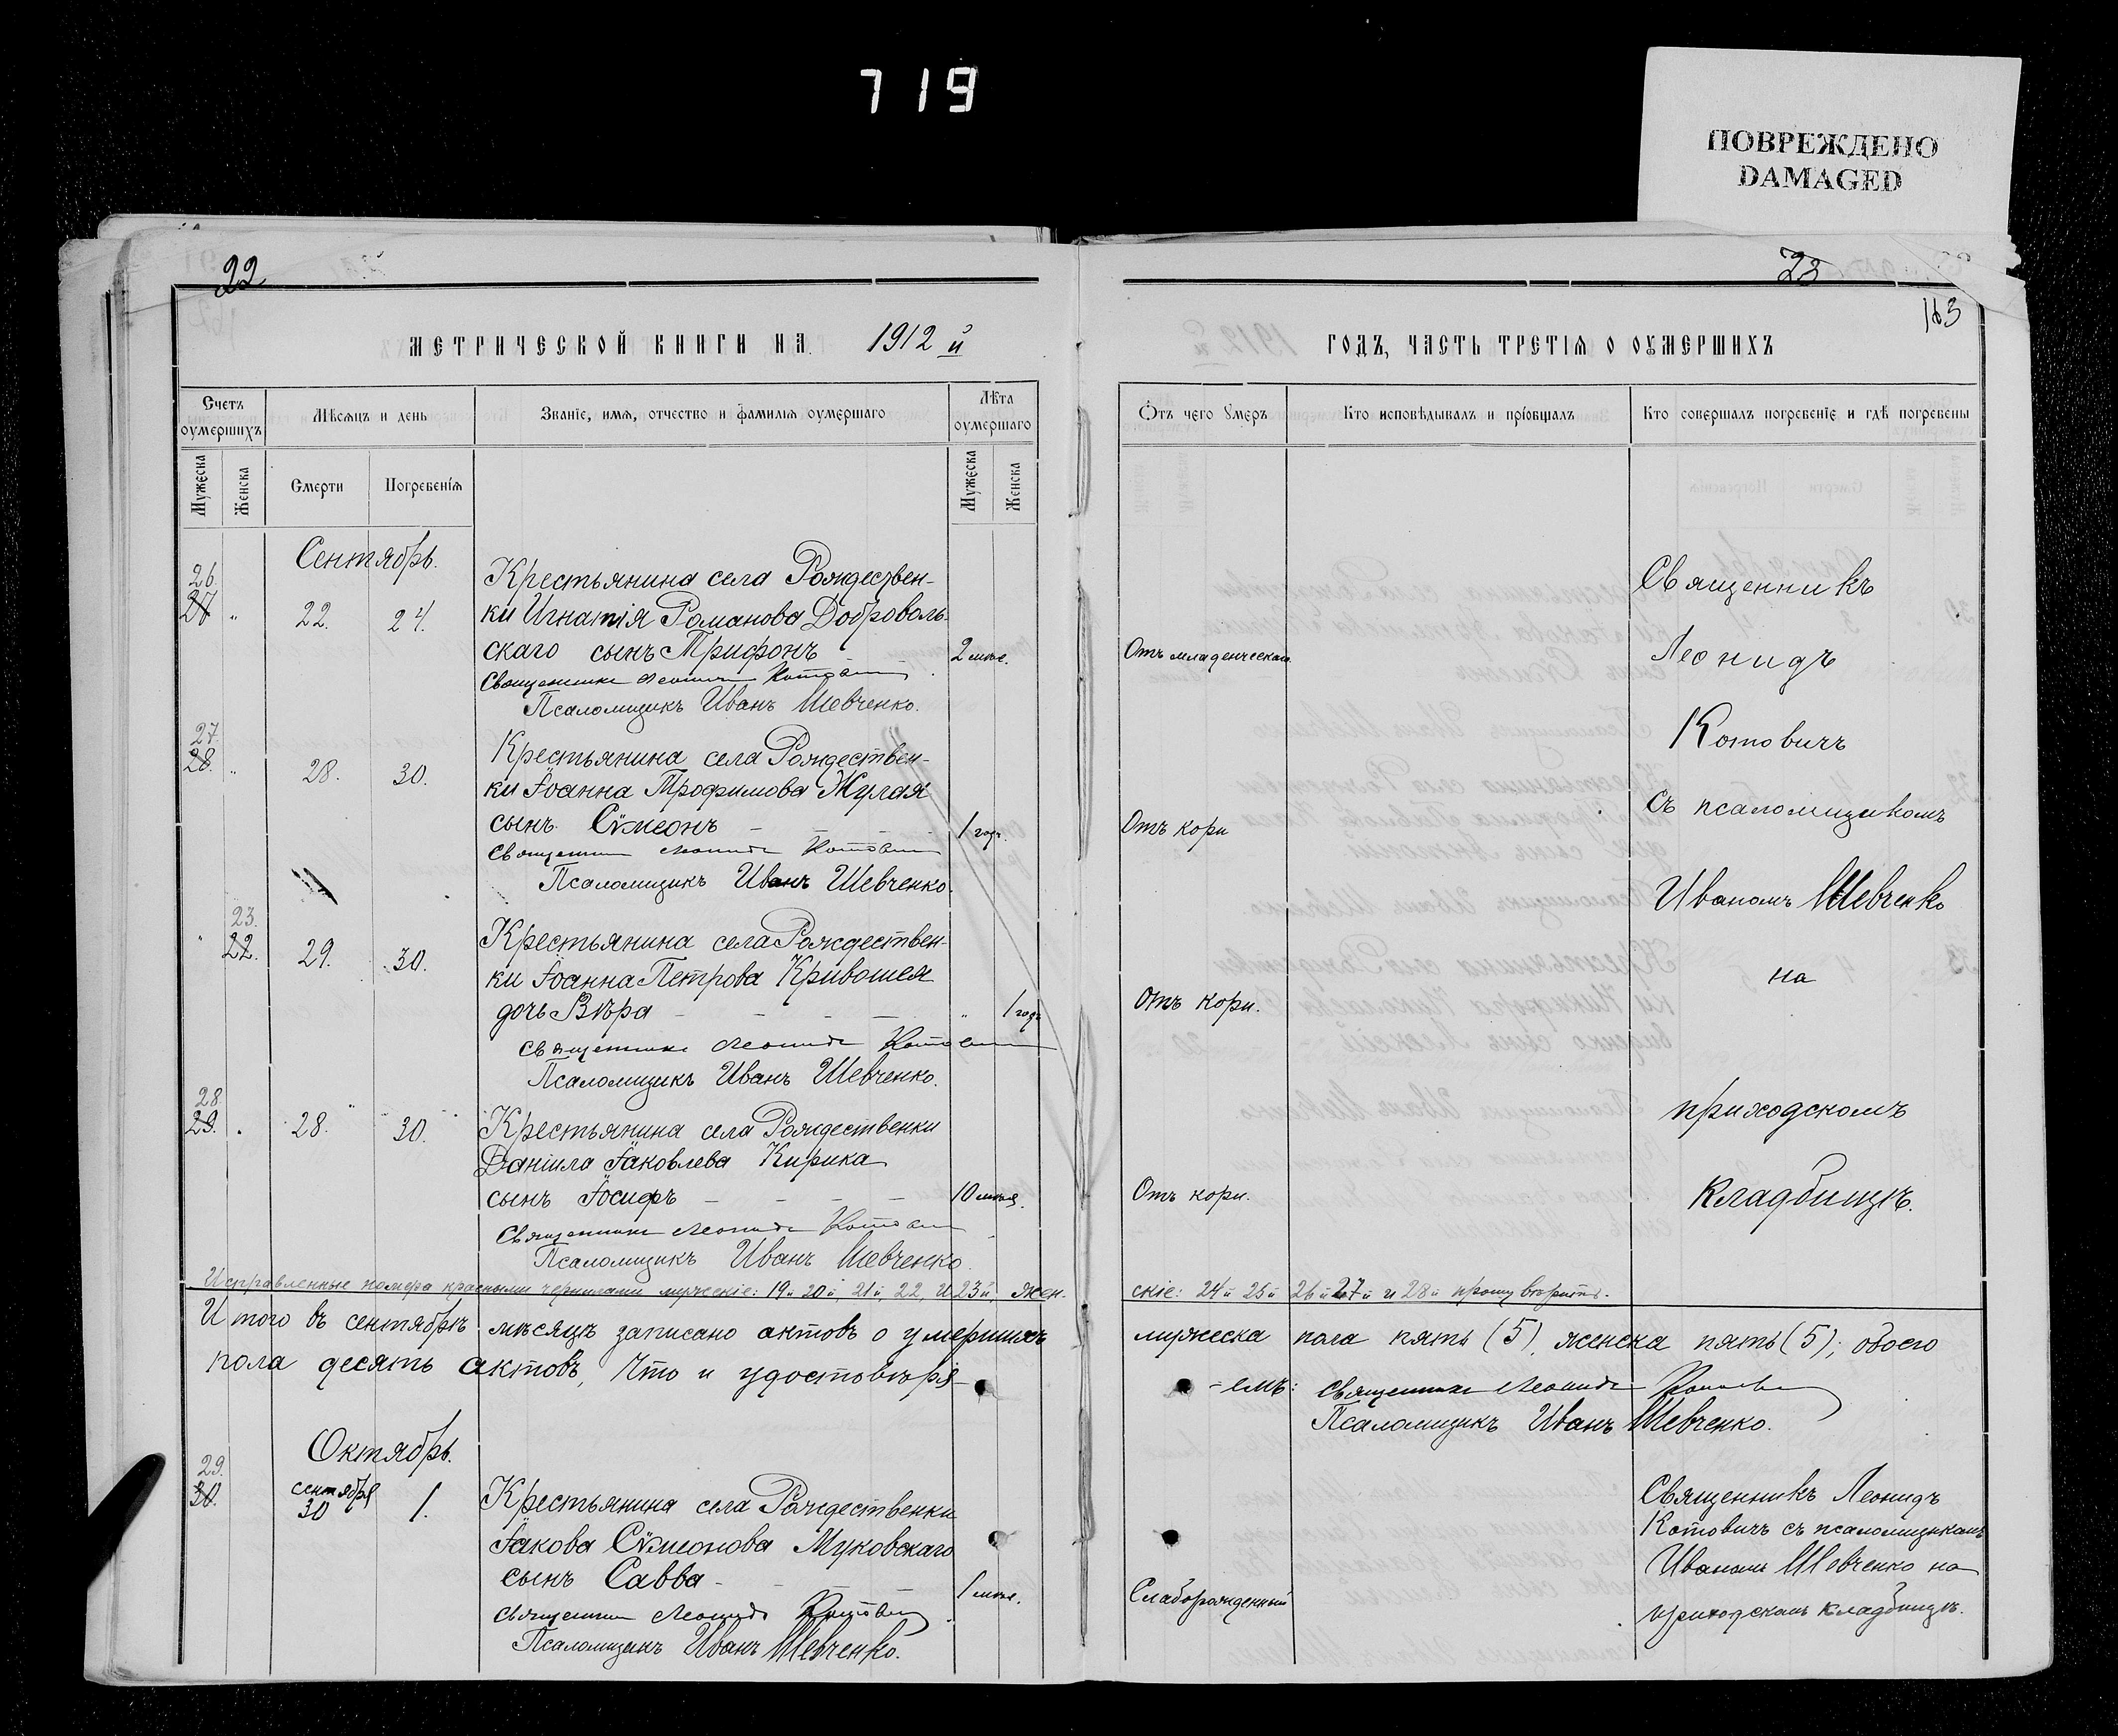 719
ПОВРЕЖДЕНО
DAMAGED
22
МЕТРИЧЕСКОЙ КНИГИ НА 1912 й
Счетъ оумершихъ
Мѣсяцъ и день
Званіе, имя, отчество и фамилія оумершаго
Лѣта оумершаго
Мужеска
Женска
Смерти
Погребенія
Мужеска
Женска
Сентябрь.
26.
27 " 22. 24.
Крестьянина села Рождествен-
ки Игнатія Романова Доброволь-
скаго сынъ Трифонъ 2 мес.
Священникъ Леонидъ Котовичъ
Псаломщикъ Иванъ Шевченко.
27.
28. " 28. 30.
Крестьянина села Рождествен-
ки Іоанна Трофимова Жулая
сынъ Сѵмеонъ - 1 годъ.
Священникъ Леонидъ Котовичъ
Псаломщикъ Иванъ Шевченко.
23.
" 22. 29. 30.
Крестьянина села Рождествен-
ки Іоанна Петрова Кривошея
дочь Вѣра - - - - " 1 годъ
Священникъ Леонидъ Котовичъ
Псаломщикъ Иванъ Шевченко.
28.
29. " 28. 30.
Крестьянина села Рождественки
Даніила Іаковлева Кирика
сынъ Іосифъ - - - - 10 мес.
Священникъ Леонидъ Котовичъ
Псаломщикъ Иванъ Шевченко.
Исправленные номера красными чернилами мужескіе: 19й 20й, 21й, 22, и 23й, жен-
Итого въ сентябрѣ мѣсяцѣ записано актовъ о умершихъ
пола десять актовъ, Что и удостовѣря-
Октябрь.
29.
30. сентября 30 1.
Крестьянина села Рождественки
Іакова Сѵмеонова Муковскаго
сынъ Савва - - - 1 мес.
Священникъ Леонидъ Котовичъ
Псаломщикъ Иванъ Шевченко.
23
163
ГОДЪ, ЧАСТЬ ТРЕТІЯ О ОУМЕРШИХЪ
Ѿтъ чего умеръ
Кто исповѣдывалъ и пріобщалъ
Кто совершалъ погребеніе и гдѣ погребены
Отъ младенческой
Отъ кори
Отъ кори.
Отъ кори.
Священникъ
Леонидъ
Котовичъ
съ псаломщикомъ
Иваномъ Шевченко
на
приходскомъ
кладбищѣ.
скіе: 24й 25й 26й 27й и 28й прошу вѣрить.
мужеска пола пять (5), женска пять (5); обоего
-емъ: Священникъ Леонидъ Котовичъ
Псаломщикъ Иванъ Шевченко.
Слаборожденный
Священникъ Леонидъ
Котовичъ съ псаломщикомъ
Иваномъ Шевченко на
приходскомъ кладбищѣ.